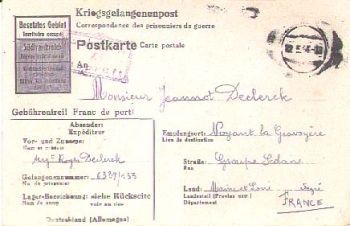 Kriegsgefangenenpost
Correspondance des prisonniers de guerre
Postkarte Carte postale
An
Besetztes Gebiet
Territoire occupé
Monsieur Jeannot Declerck
Gebührenfrei! Franc de port!
Absender:
Expéditeur
Vor- und Zuname:
Nom et prénom
Roger Declerck
Gefangenennummer:
No. du prisonnier
Lager-Bezeichnung: siehe Rückseite
Nom du camp voir au dos
Deutschland (Allemagne)
Empfangsort: Noyant la Gravoyère
Lieu de destination
Straße: Groupe
Rue
Land: Maine et Loire Segré
Landesteil (Provinz usw.)
Département
FRANCE